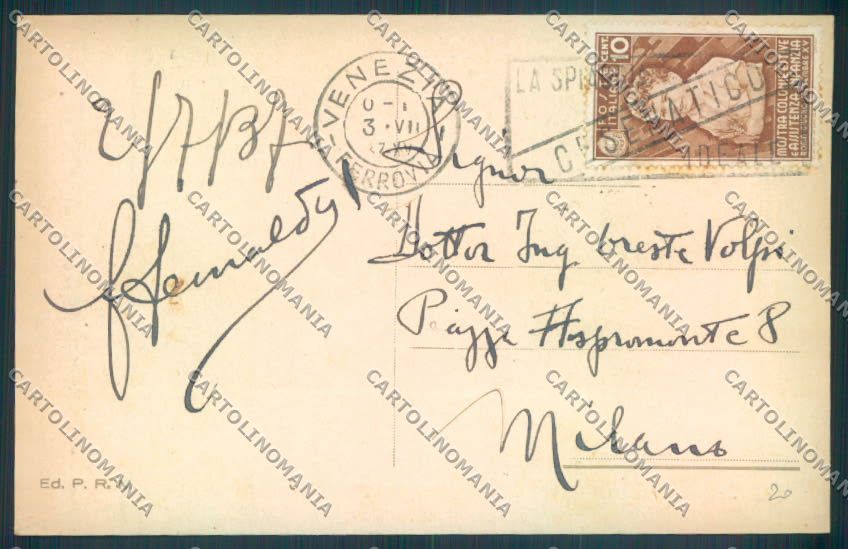 2/7/37
-VENEZIA-
3·VII
FERROVIA
LA SPIAGGIA
CESENATICO
IDEALE
10
CENT.
POSTE
ITALIANE
MOSTRA COLONIE ESTIVE
E ASSISTENZA INFANZIA
Signor
Dottor Ing Oreste Volpi
Piazza Aspromonte 8
Milano
Ed. P. R. M.
20
CARTOLINOMANIA